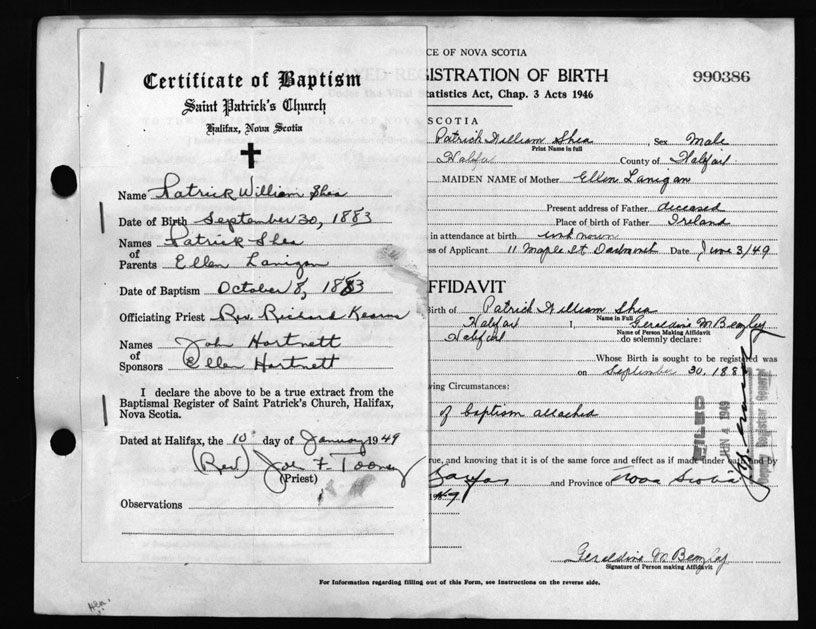 Certificate of Baptism
Saint Patrick's Church
Halifax, Nova Scotia
Name Patrick William Shea
Date of Birth September 30, 1883
Names Patrick Shea
of
Parents Ellen Lanigan
Date of Baptism October 8, 1883
Officiating Priest Rev. Richard
Names John Hartnett
of
Sponsors Ellen Hartnett
I declare the above to be a true extract from the
Baptismal Register of Saint Patrick's Church, Halifax,
Nova Scotia.
Dated at Halifax, the 10 day of January 1949
(Rev) F.
(Priest)
Observations
CE OF NOVA SCOTIA
ISTRATION OF BIRTH 990386
tatistics Act, Chap. 3 Acts 1946
SCOTIA
Patrick William Shea, Sex Male
Print Name in full
Halifax County of Halifax
MAIDEN NAME of Mother Ellen Lanigan
Present address of Father deceased
Place of birth of Father Ireland
in attendance at birth unknown
ss of Applicant 11 Maple St Dartmouth Date June 3/49
FFIDAVIT
Birth of Patrick William Shea
Name in Full
Halifax I, Geraldine M
Name of Person Making Affidavit
Halifax do solemnly declare:
Whose Birth is sought to be registered was
on September 30, 188
ving Circumstances:
of baptism attached
rue, and knowing that it is of the same force and effect as if made under oath and by
and Province of Nova Scotia
1949
Geraldine M
Signature of Person making Affidavit
For Information regarding filling out of this Form, see Instructions on the reverse side.
FILED
JUN 4 1949
Deputy Registrar General